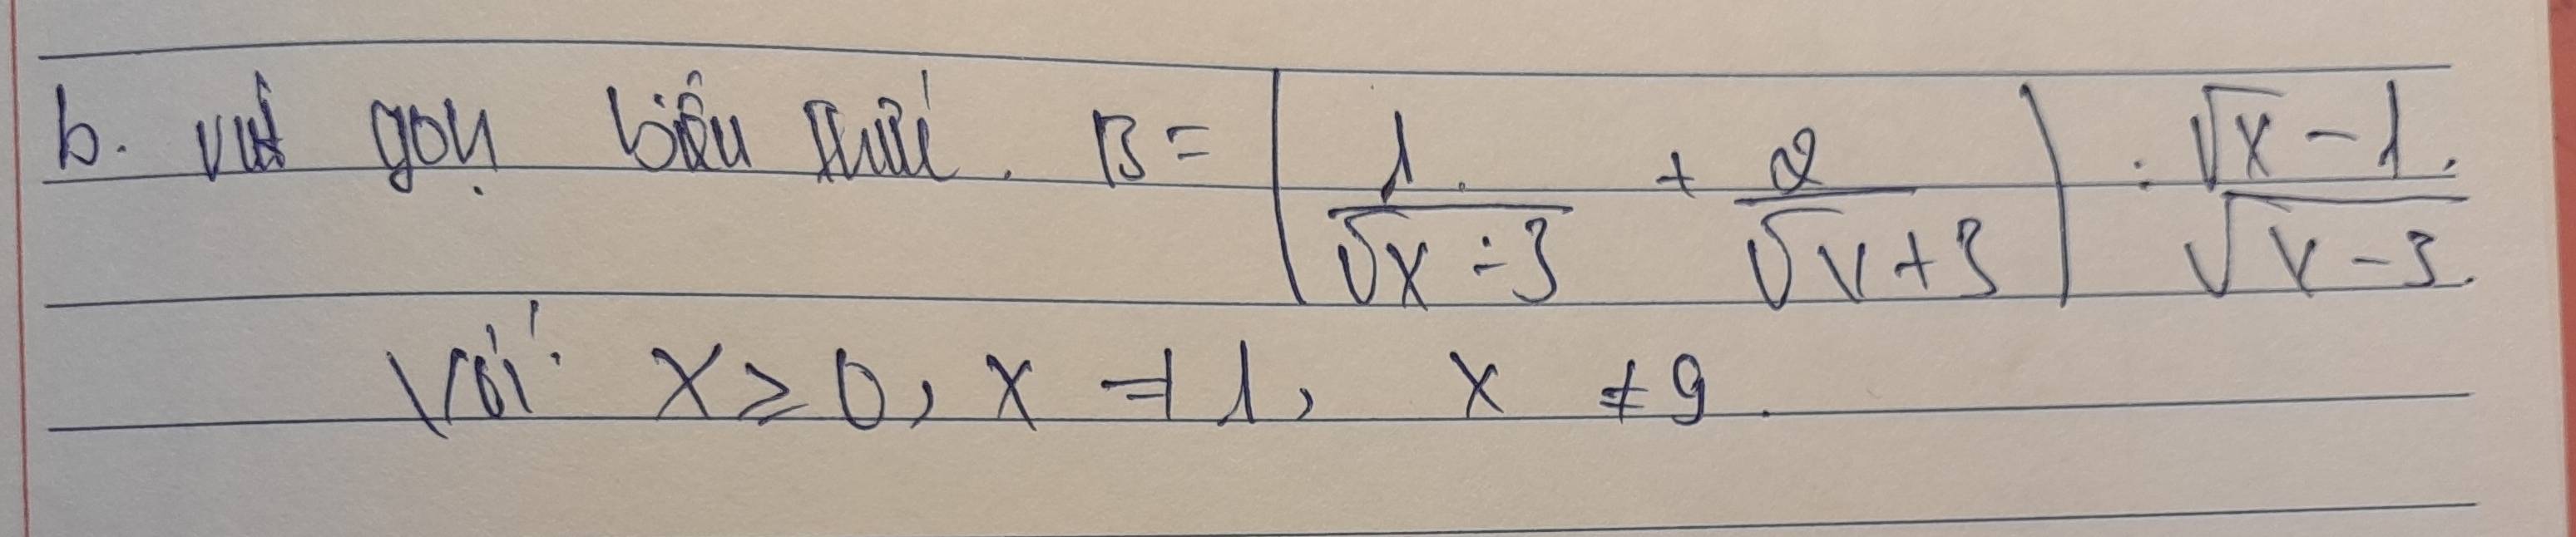 b. rút gọn biểu thức. B = (1/(√x - 3) + 2/(√x + 3)) : (√x - 1)/(√x - 3).
Với x ≥ 0, x ≠ 1, x ≠ 9.